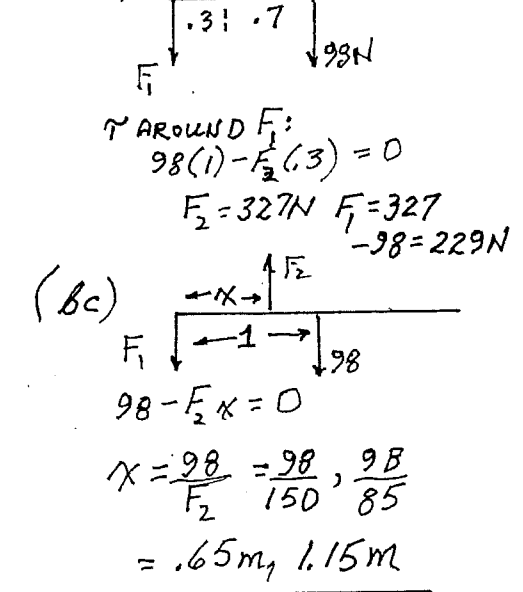 .3 .7
F₁ 98N
τ AROUND F₁:
98(1)-F₂(.3) = 0
F₂ = 327N F₁ = 327
-98 = 229N
(bc)
F₂
←x→
F₁ ←1→ 98
98 - F₂x = 0
x = 98/F₂ = 98/150, 98/85
= .65m, 1.15m